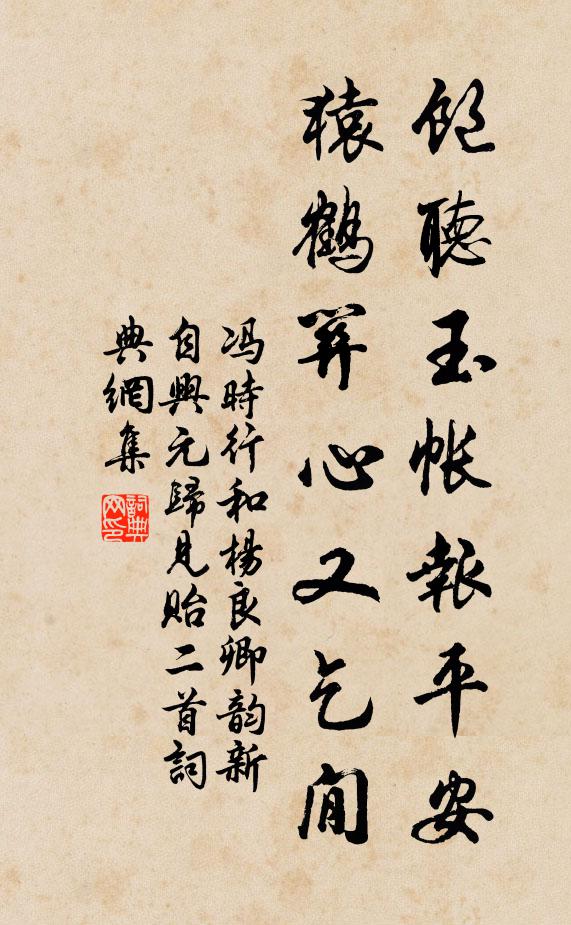 飽聽玉帳報平安
猿鶴關心又乞閒
冯時行和楊良卿韵新
自興元歸見貽二首詞
典網集
詞典
网印